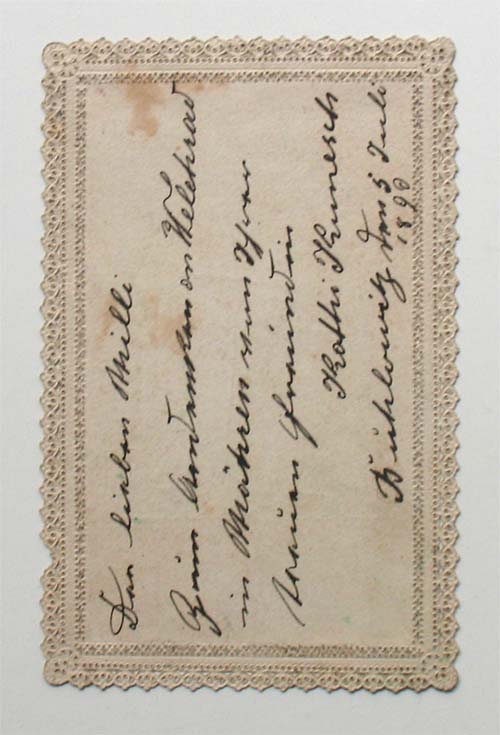 Der lieben Milli
Zum Andenken an Velehrad
in Mähren von Ihrer
treuen Freundin
Kathi Kunesch
Buchlowitz den 5 Juli
1890